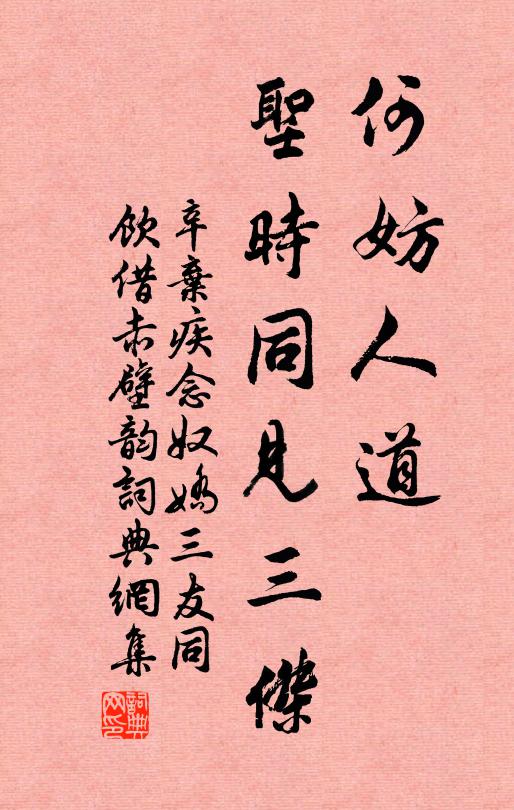 何妨人道
聖時同見三傑
辛棄疾念奴嬌三友同
飲借赤壁韵詞典網集
詞典网印